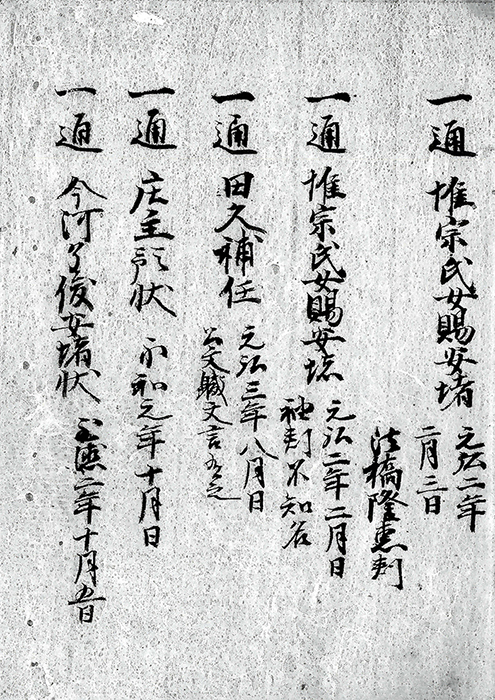 一通 惟宗氏女賜安堵 元弘二年
二月三日
法橋隆恵判
一通 惟宗氏女賜安堵 元弘二年二月日
袖判不知名
一通 田久補任 元弘三年八月日
公文職文言有之
一通 庄主預状 永和元年十月日
一通 今河了俊安堵状 応二年十月五日